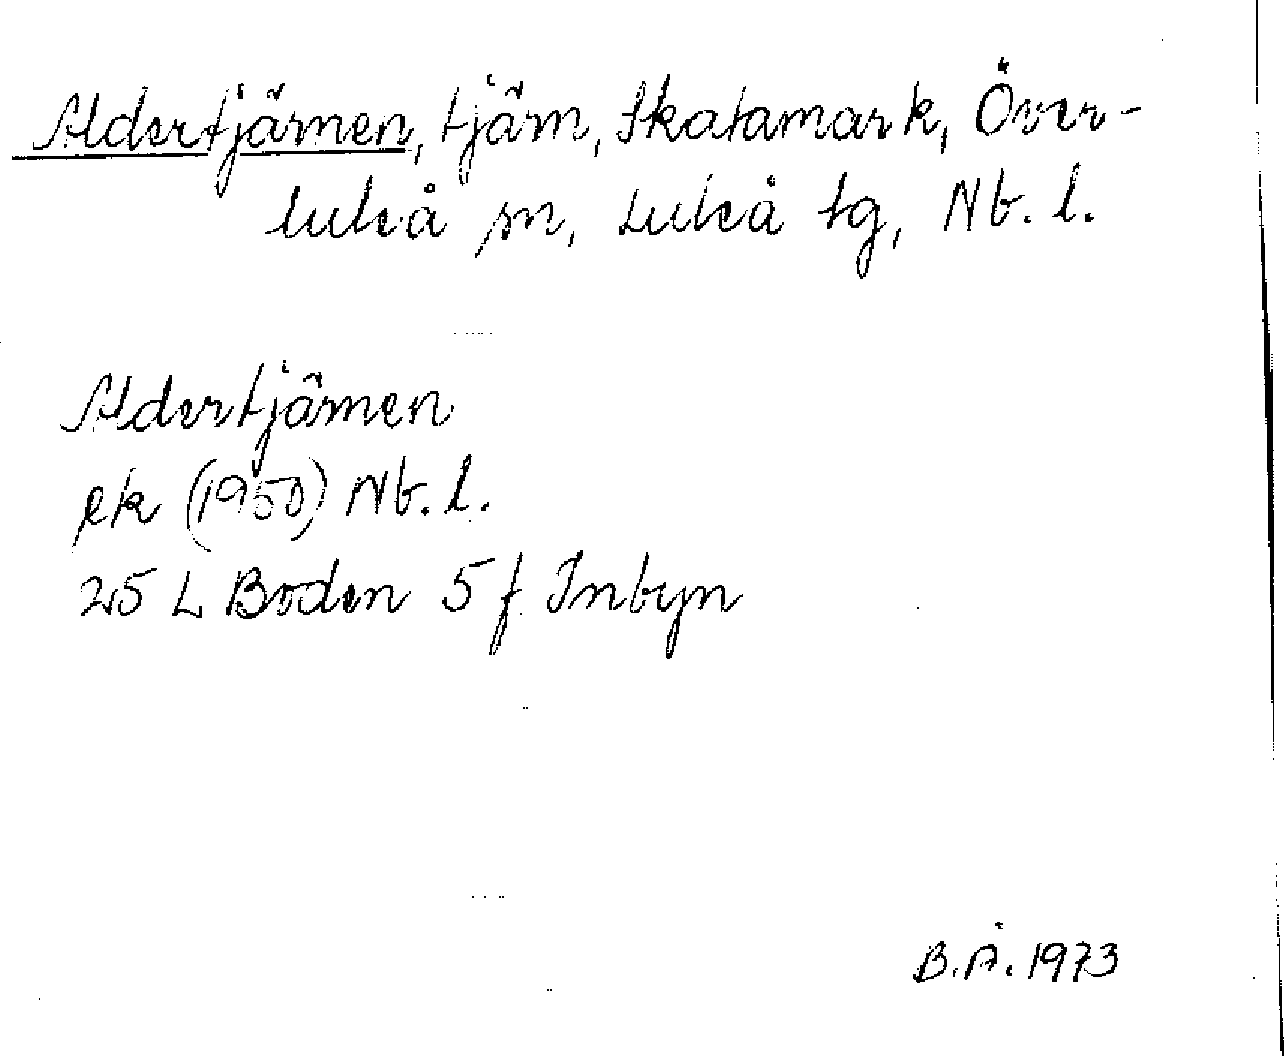 Aldertjärnen, tjärn, Skatamark, Över-
luleå sn, Luleå tg, Nb. l.
Aldertjärnen
ek (1950) Nb. l.
25 L Boden 5 f Inbyn
B.Å. 1973